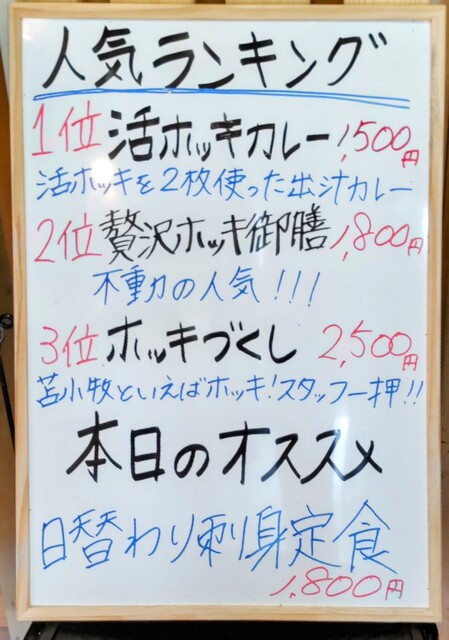 人気ランキング
1位 活ホッキカレー 1,500円
活ホッキを2枚使った出汁カレー
2位 贅沢ホッキ御膳 1,800円
不動の人気!!!
3位 ホッキづくし 2,500円
苫小牧といえばホッキ!スタッフ一押!!
本日のオススメ
日替わり刺身定食
1,800円